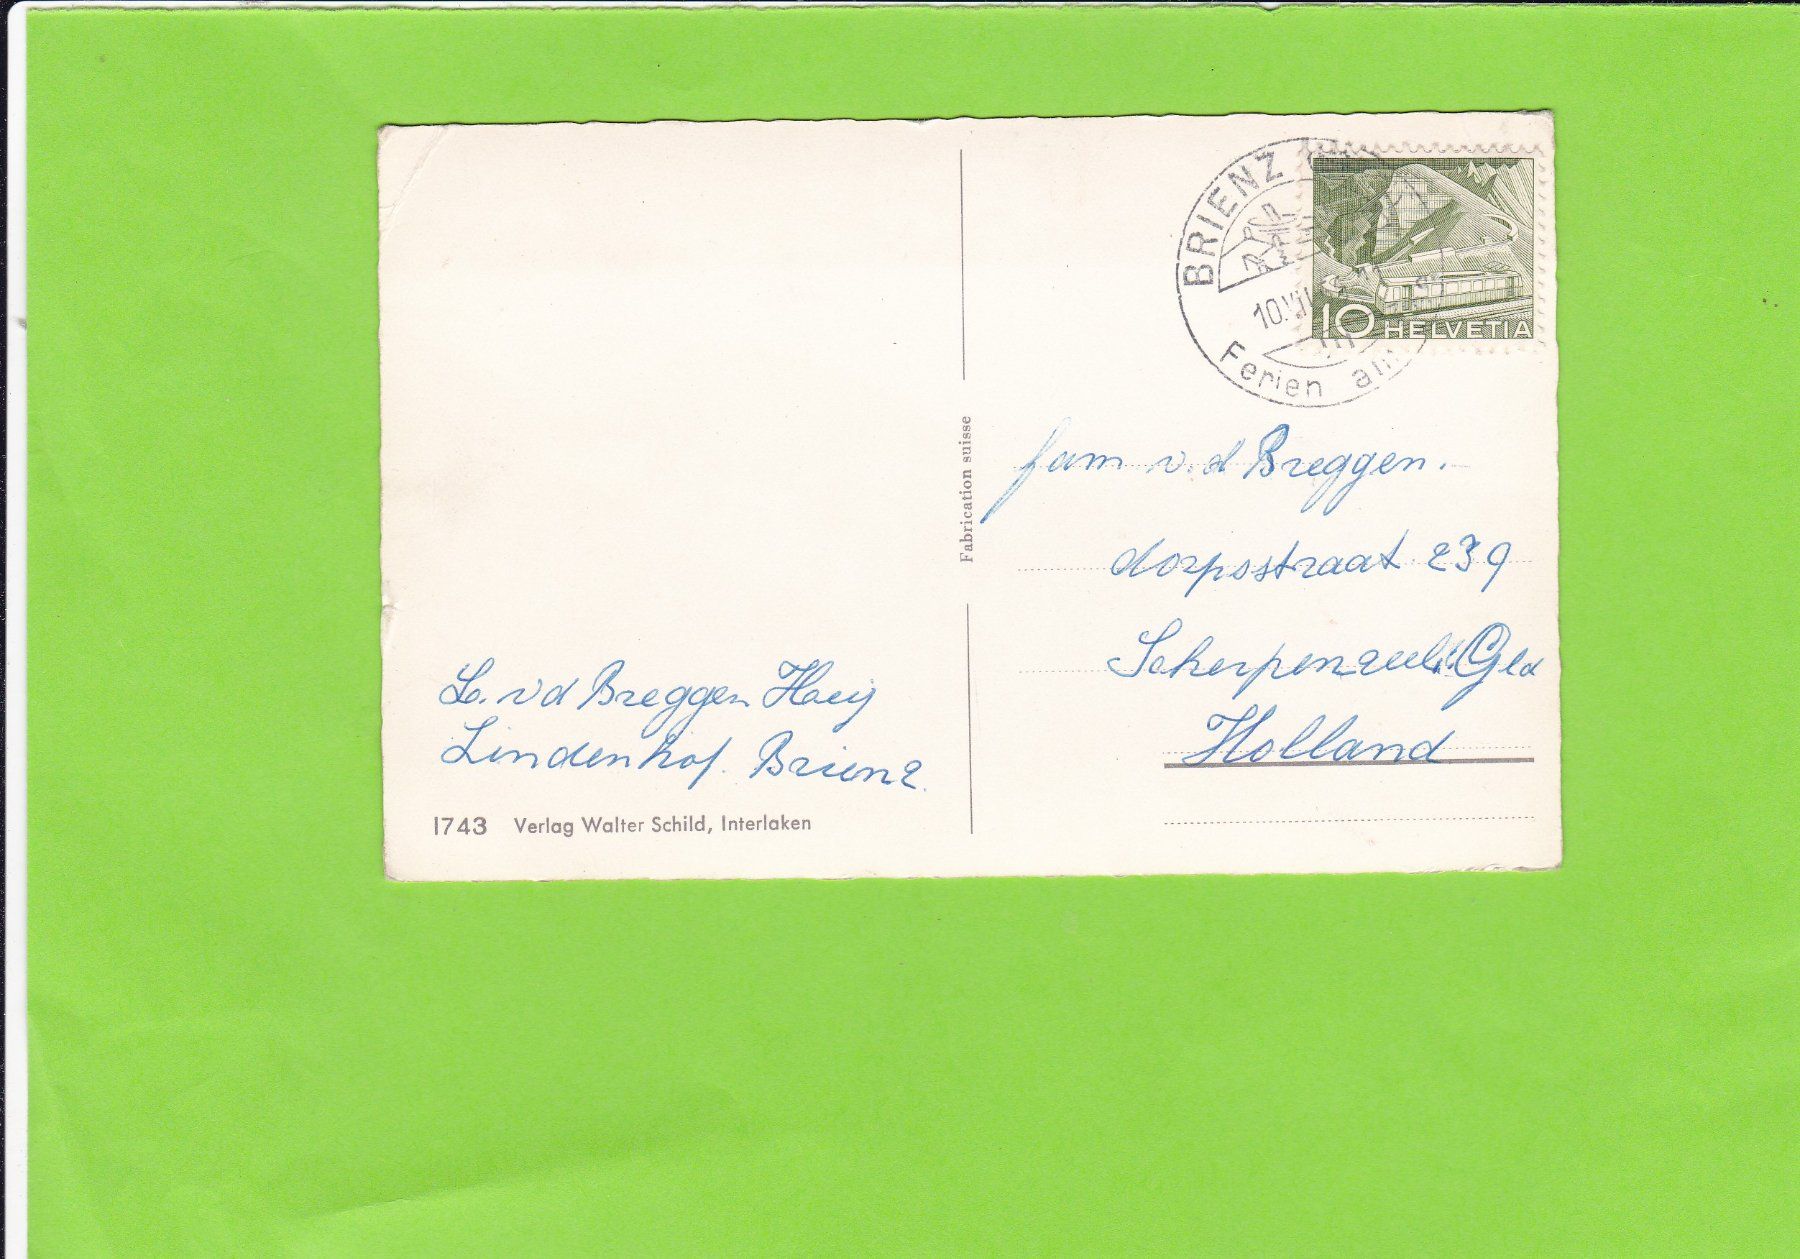 BRIENZ
10.VII
Ferien am
10 HELVETIA
fam v.d Breggen.
dorpsstraat 239
Scherpenzeel. Gld
Holland
Fabrication suisse
L. vd Breggen Heij
Lindenhof. Brienz.
1743 Verlag Walter Schild, Interlaken